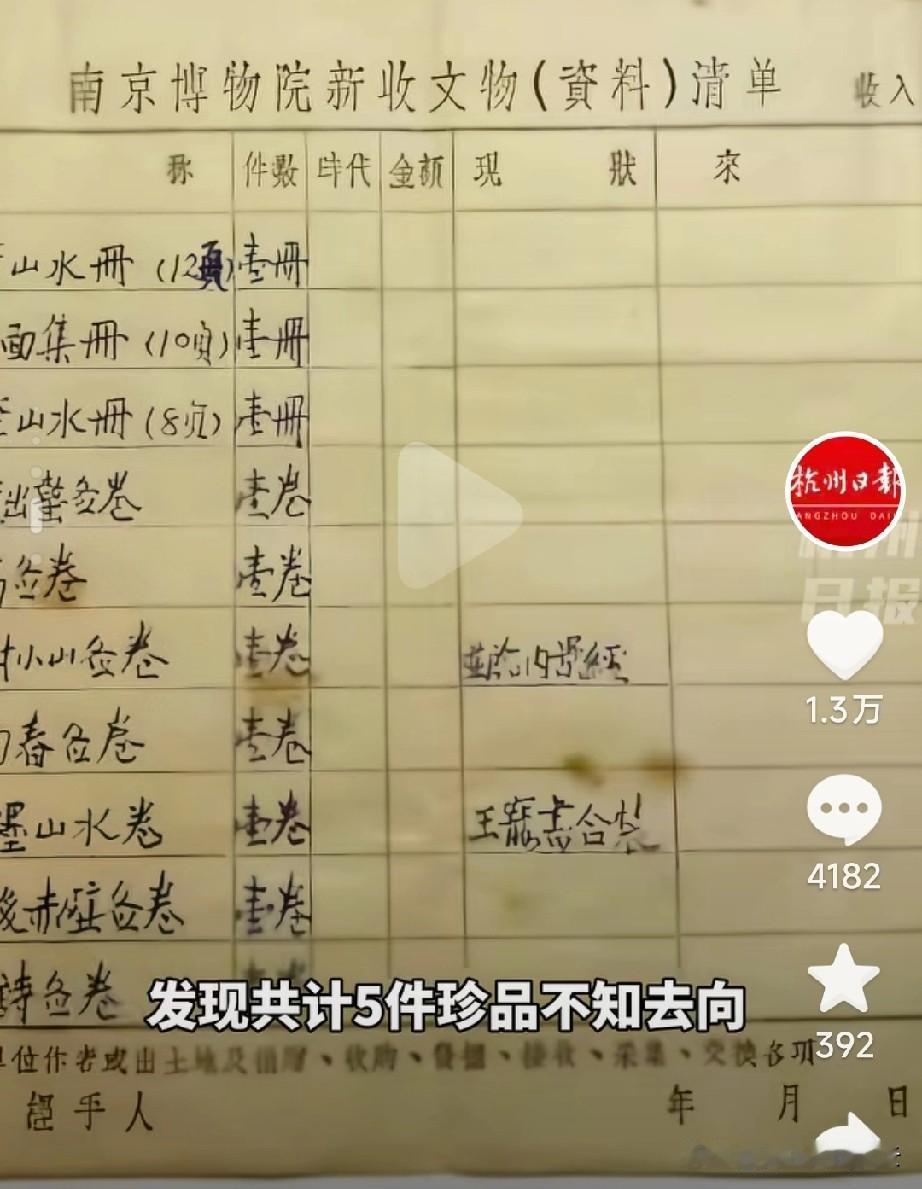 南京博物院新收文物(資料)清单
收入
称 件数 时代 金額 現 狀 來
山水冊 (12頁) 壹冊
面集冊 (10页) 壹冊
山水冊 (8页) 壹冊
壹卷
卷 壹卷
小山 卷 壹卷
春 卷 壹卷
墨山水卷 壹卷 王 合裝
後赤壁 卷 壹卷
卷
发现共计5件珍品不知去向
单位作者或出土地及捐贈、收购、發掘、接收、采集、交換各項
經手人 年 月 日
杭州日報
HANGZHOU DAI
杭州
日报
1.3万
4182
392